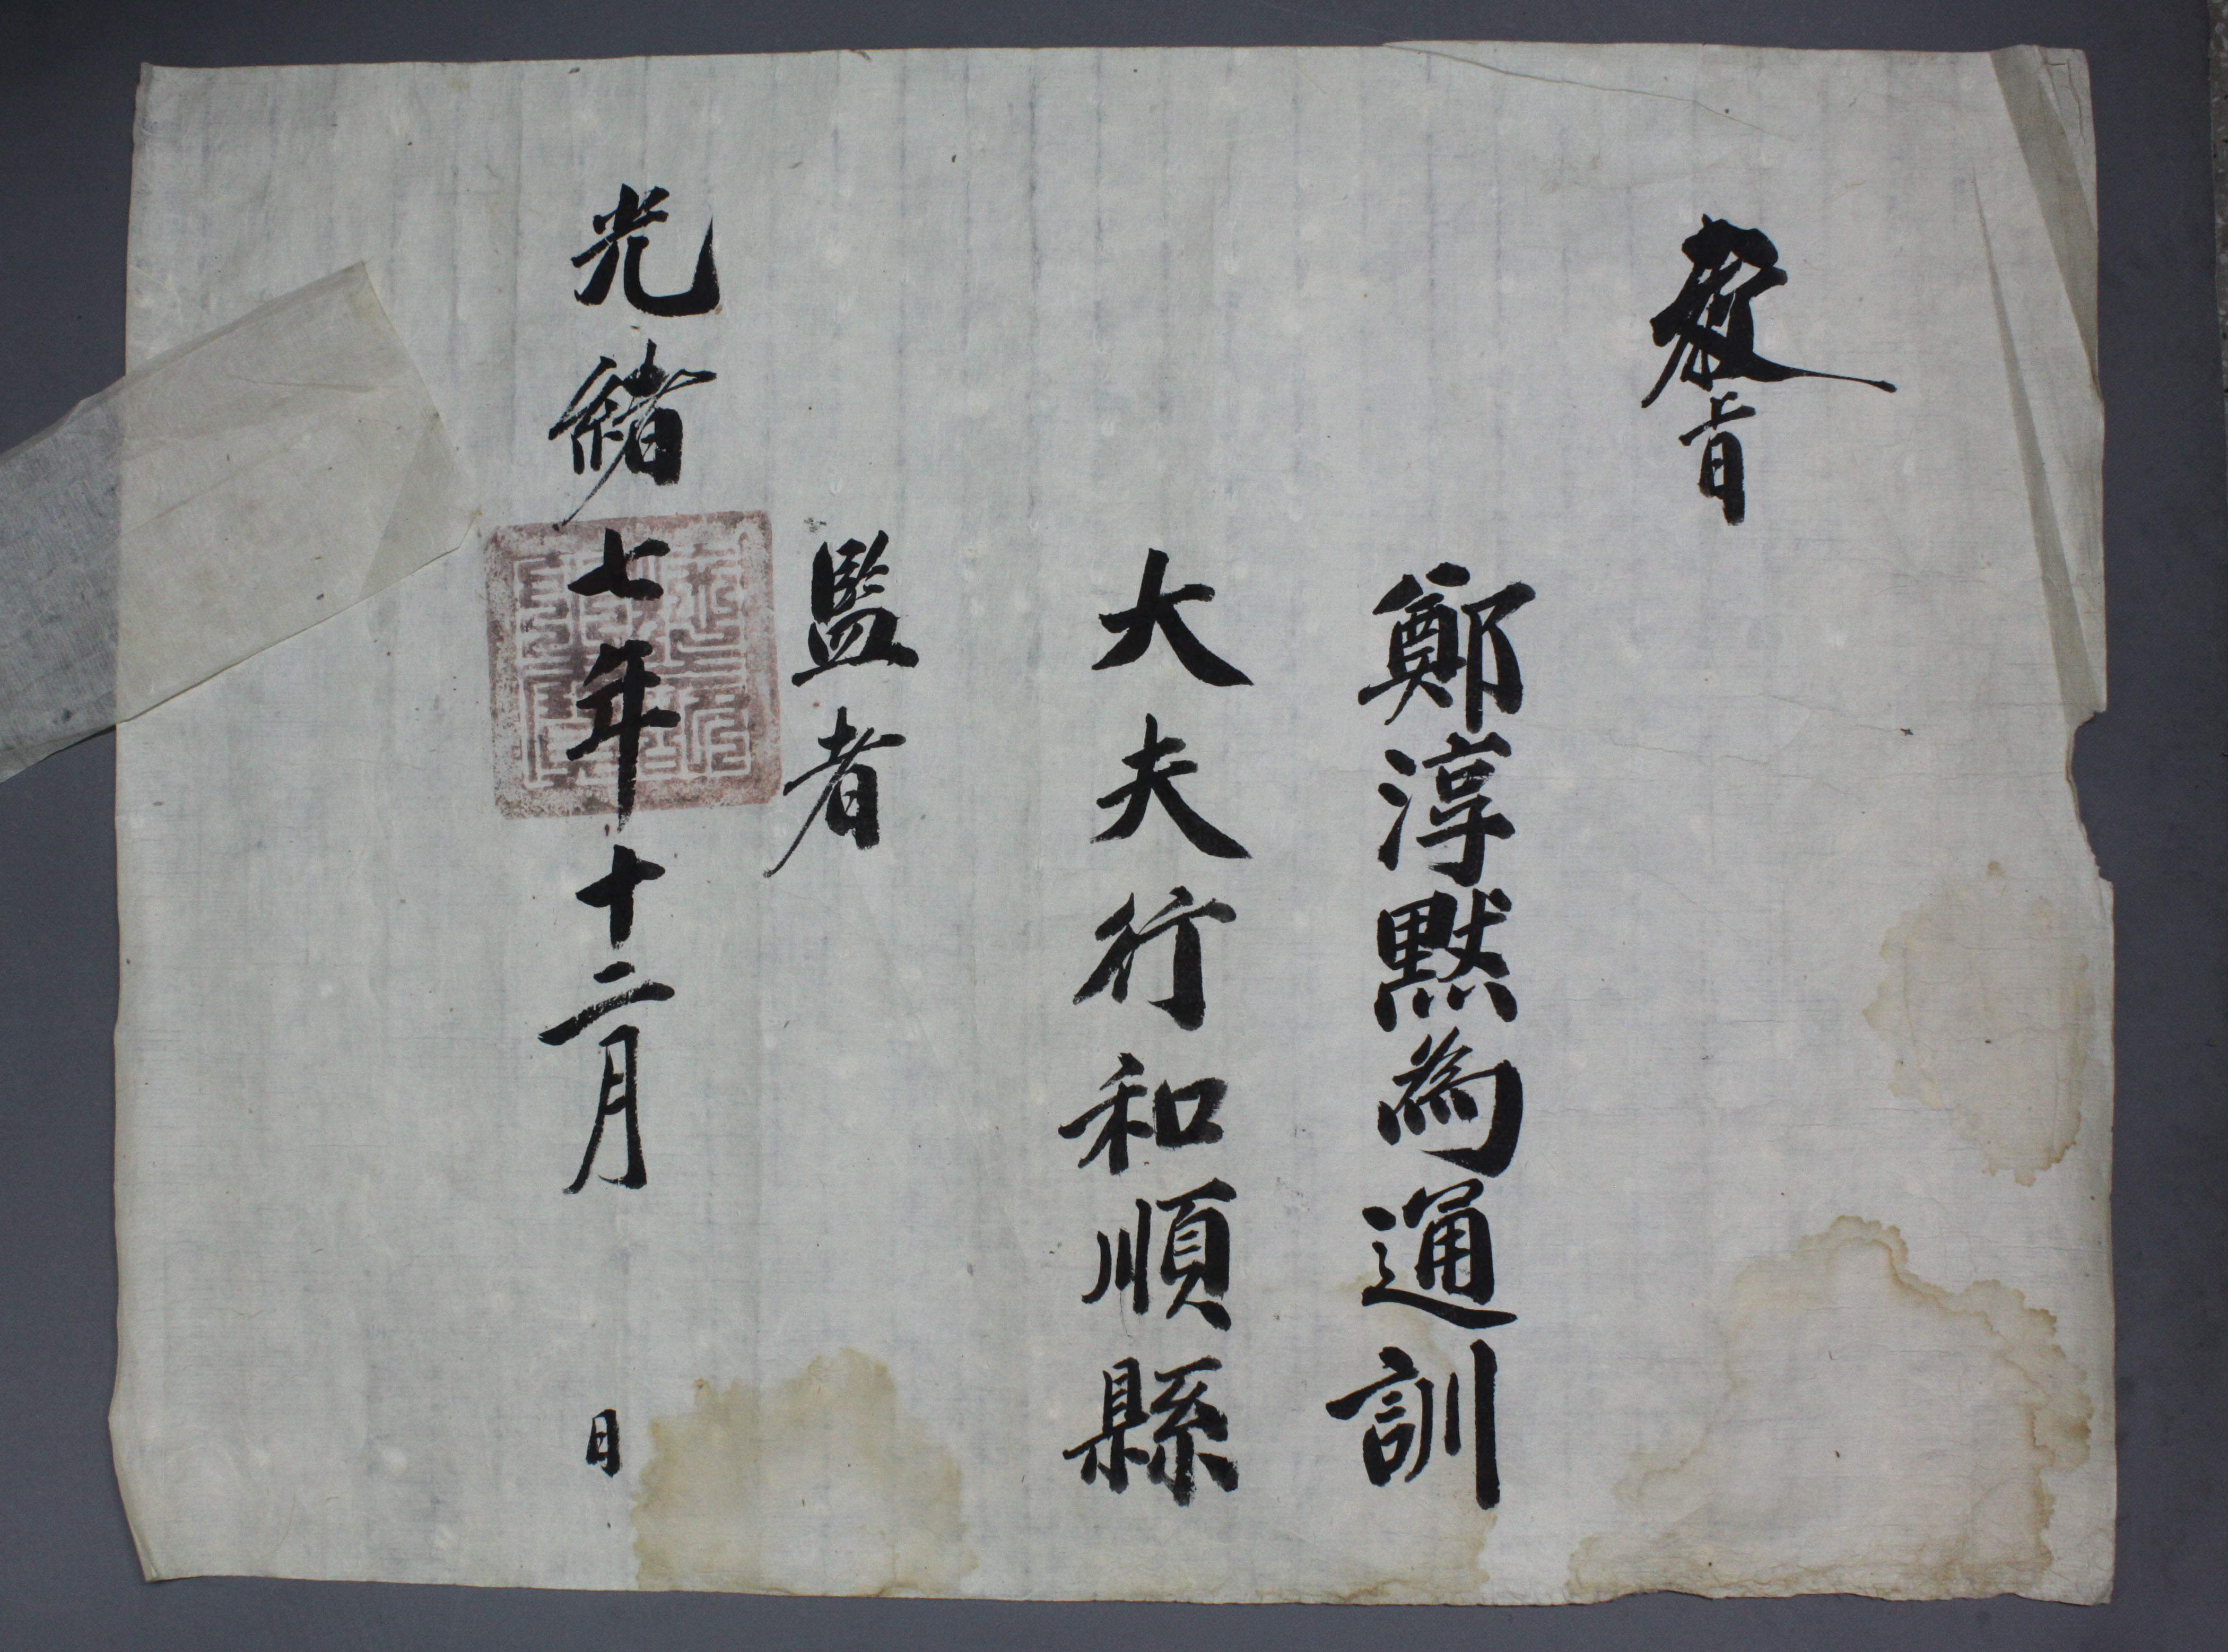 敎旨
鄭淳默為通訓
大夫行和順縣
監者
光緖七年十二月 日